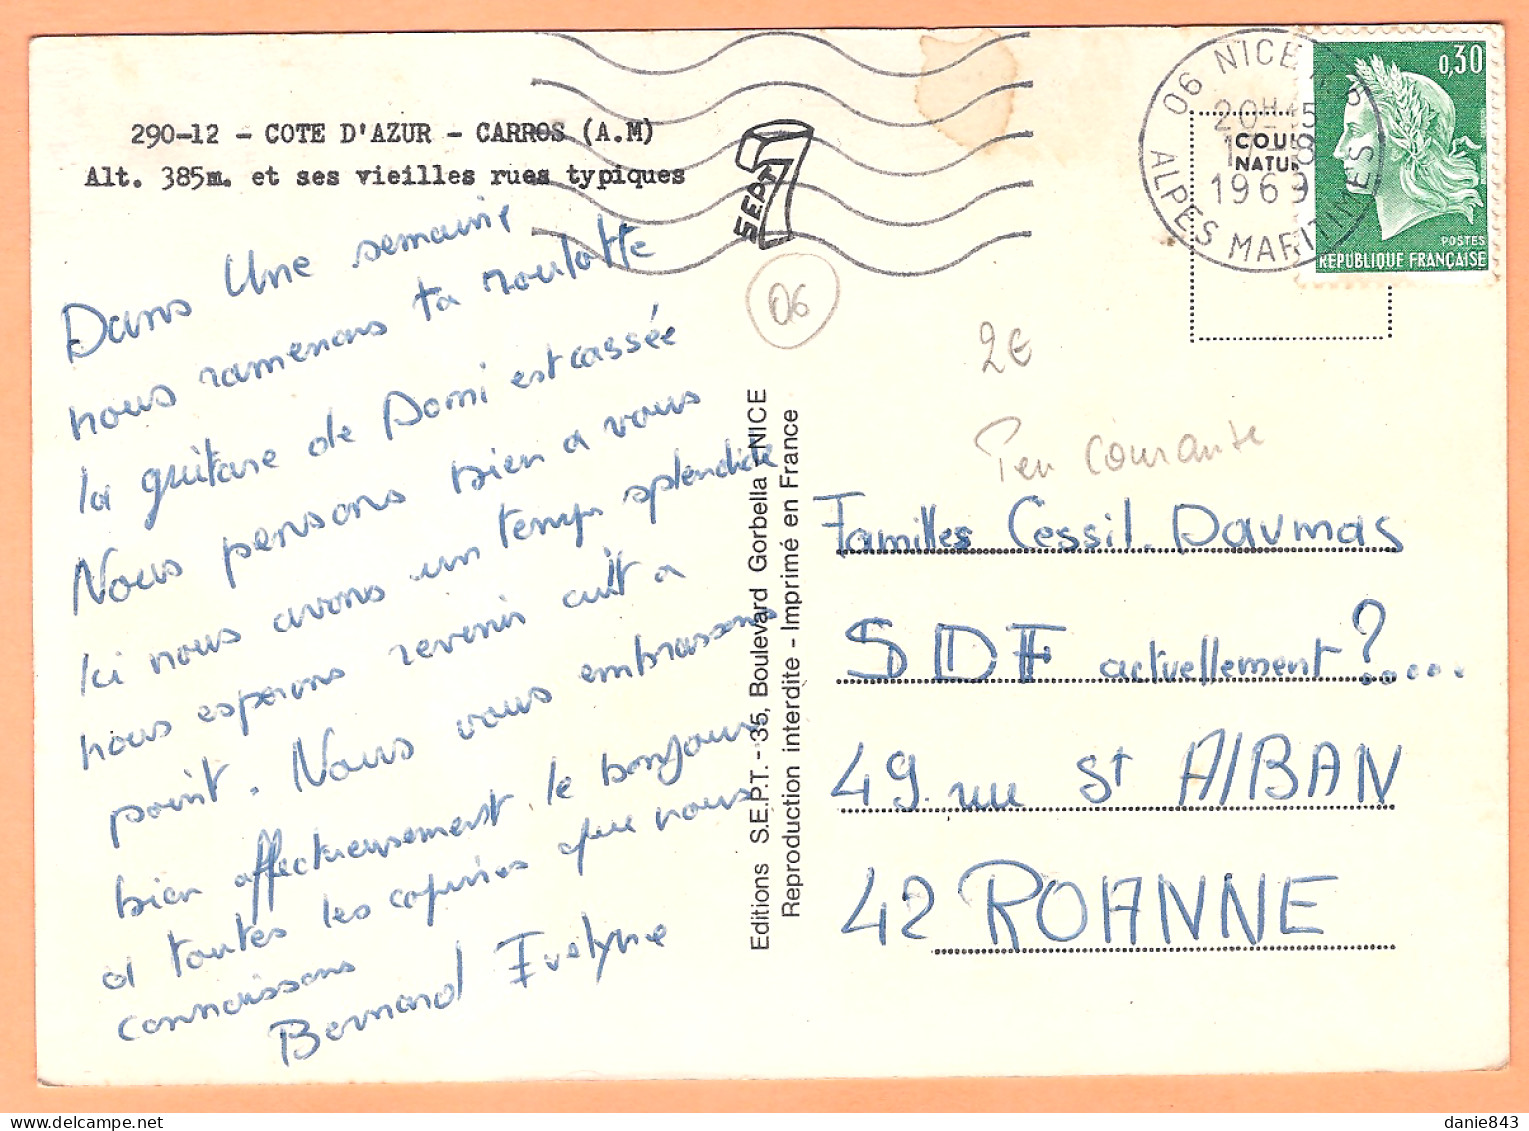 290-12 - COTE D'AZUR - CARROS (A.M)
Alt. 385m. et ses vieilles rues typiques
Dans Une semaine
nous ramenons ta roulotte
la guitare de Domi est cassée
Nous pensons bien a vous
Ici nous avons un temps splendide
nous esperons revenir cuit a
point. Nous vous embrassons
bien affectueusement le bonjour
a toutes les copines que nous
connaissons
Bernard Evelyne
SEPT
06
Editions S.E.P.T. - 35, Boulevard Gorbella NICE
Reproduction interdite - Imprimé en France
06 NICE
20H15
8
1969
ALPES MARITIMES
COU
NATUR
0,30
POSTES
REPUBLIQUE FRANÇAISE
2€
Peu courante
Familles Cessil. Daumas
SDF actuellement ?.....
49. rue St AlBAN
42 ROANNE
danie843